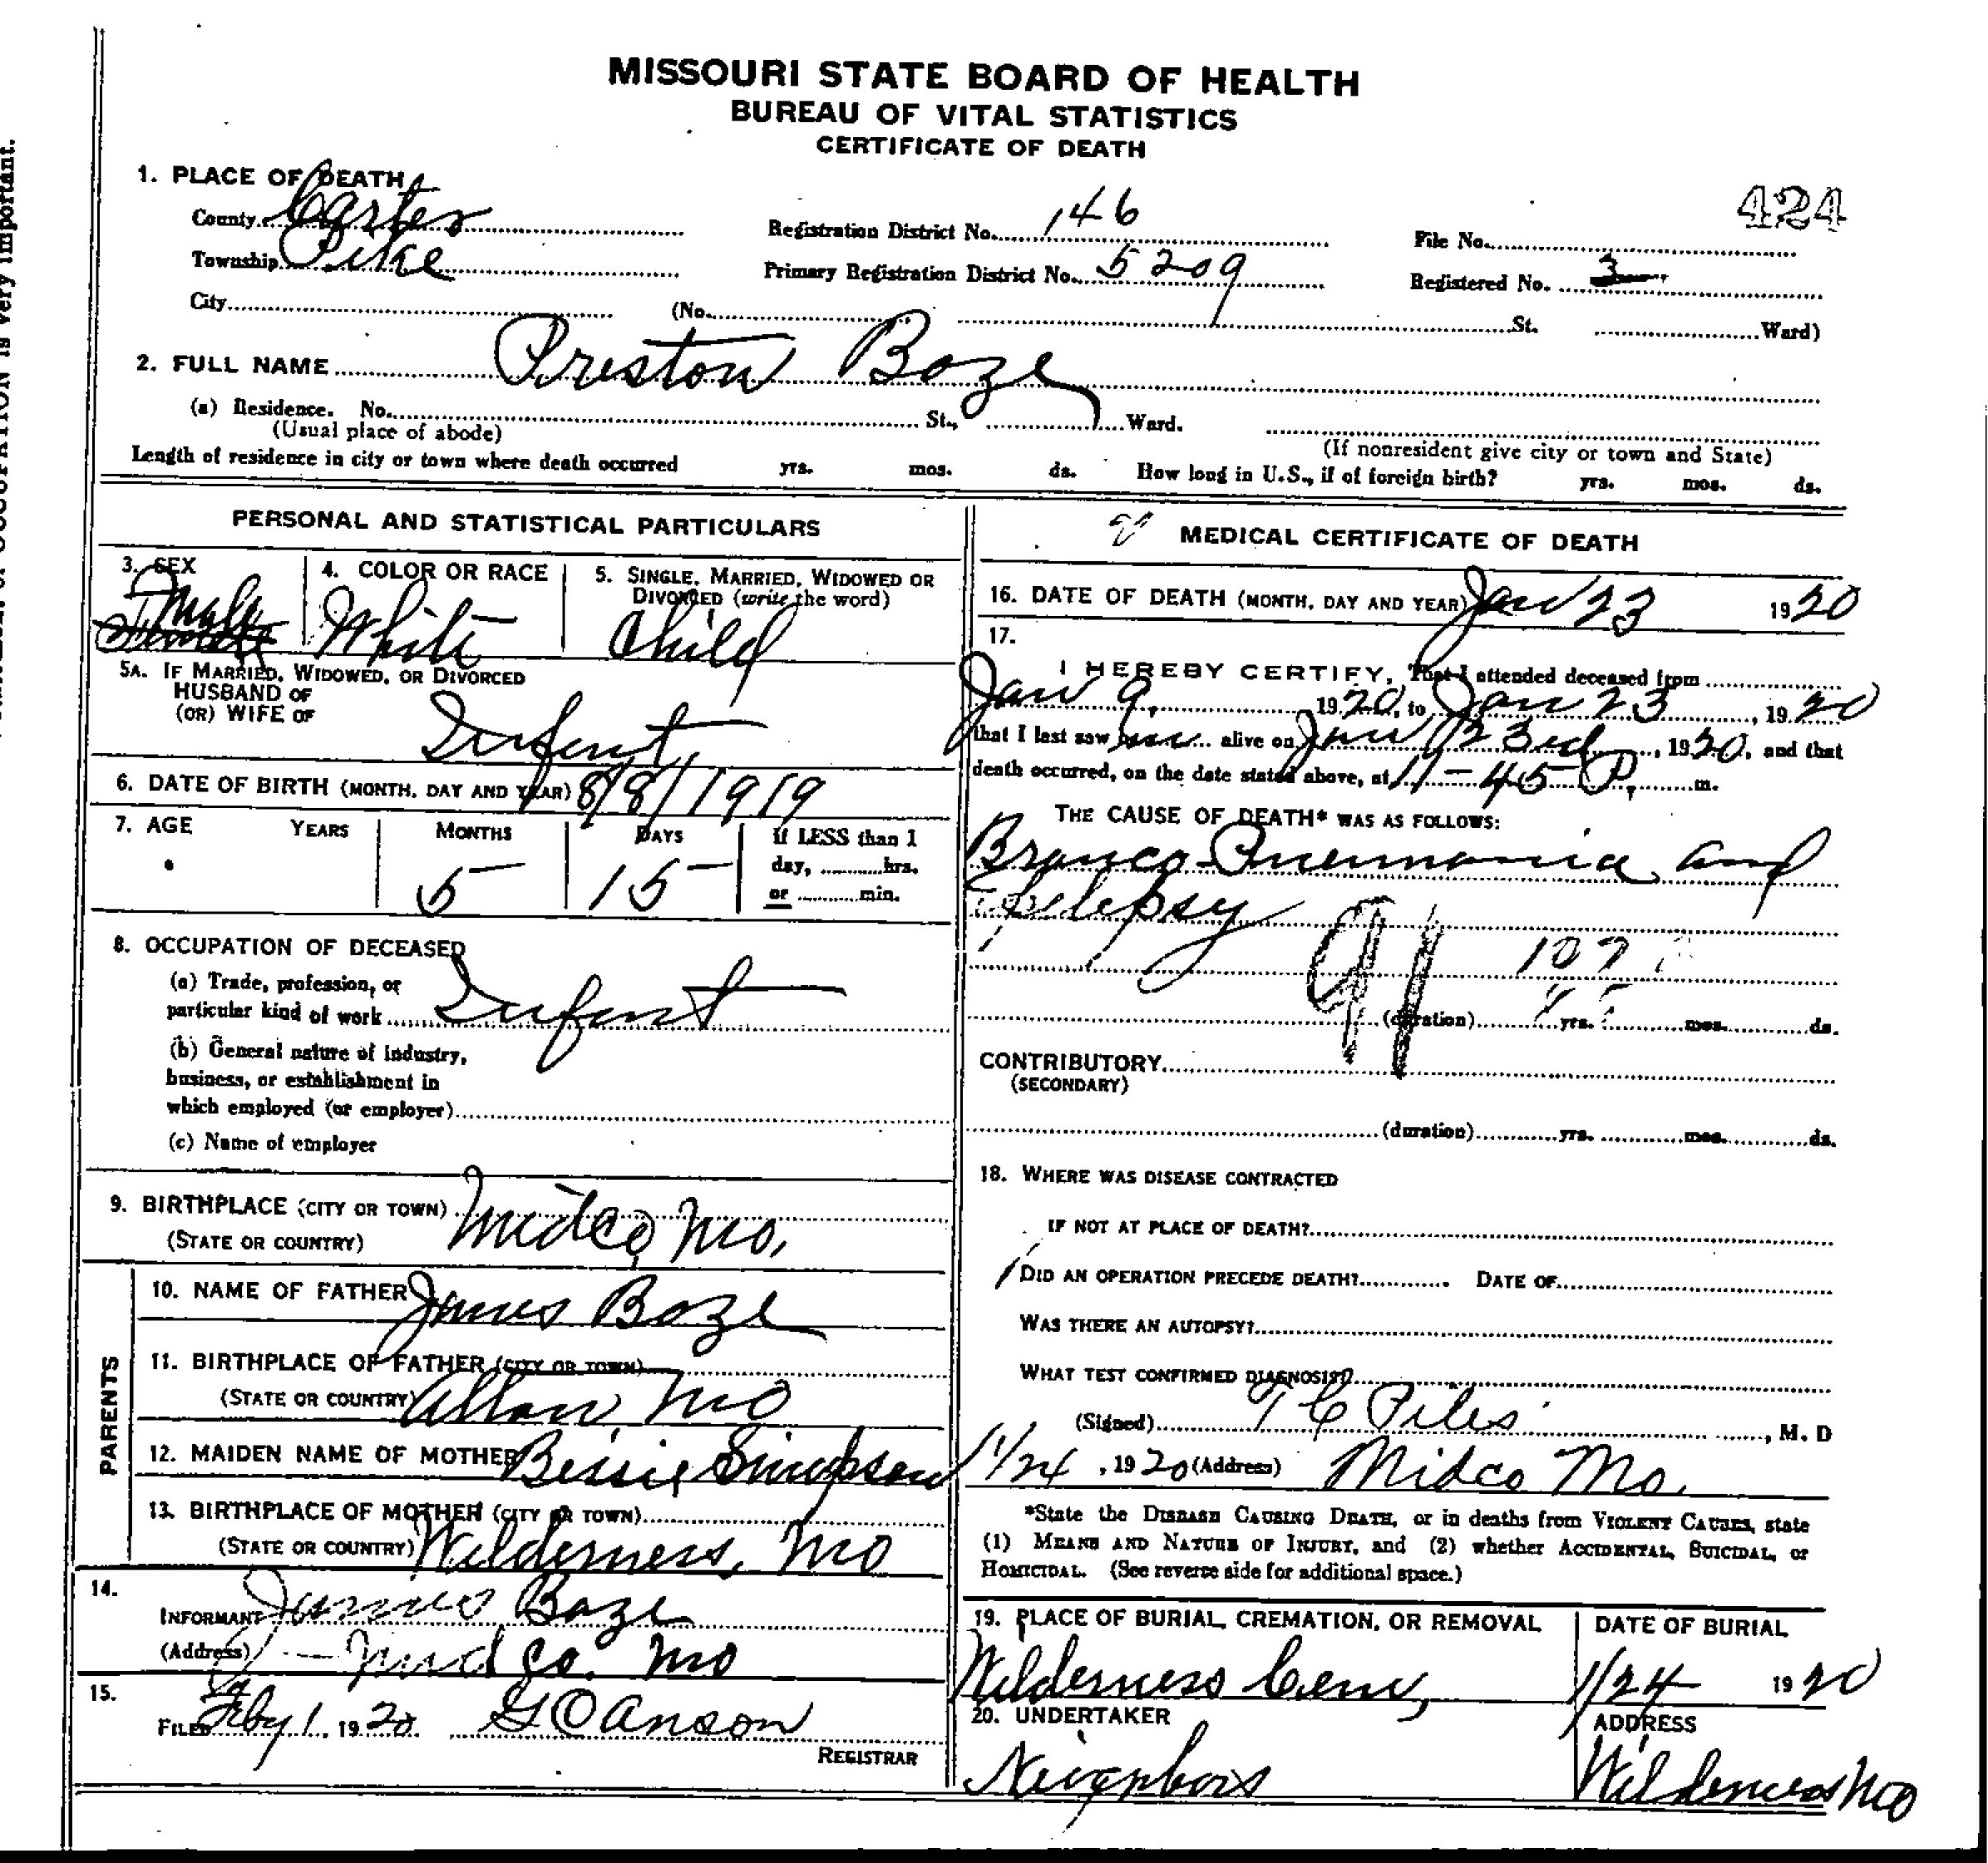 MISSOURI STATE BOARD OF HEALTH
BUREAU OF VITAL STATISTICS
CERTIFICATE OF DEATH
1. PLACE OF DEATH
County Carter Registration District No. 146 File No. 424
Township Pike Primary Registration District No. 5209 Registered No. 3
City (No. St. Ward)
2. FULL NAME Preston Boze
(a) Residence. No. St., Ward.
(Usual place of abode) (If nonresident give city or town and State)
Length of residence in city or town where death occurred yrs. mos. ds. How long in U.S., if of foreign birth? yrs. mos. ds.
PERSONAL AND STATISTICAL PARTICULARS
3. SEX
Male
4. COLOR OR RACE
White
5. SINGLE, MARRIED, WIDOWED OR
DIVORCED (write the word)
Child
5A. IF MARRIED, WIDOWED, OR DIVORCED
HUSBAND OF
(OR) WIFE OF
Infent
6. DATE OF BIRTH (MONTH, DAY AND YEAR) 8/8/1919
7. AGE YEARS MONTHS DAYS If LESS than 1
day, hrs.
5 15 or min.
8. OCCUPATION OF DECEASED
(a) Trade, profession, or
particular kind of work Infent
(b) General nature of industry,
business, or establishment in
which employed (or employer)
(c) Name of employer
9. BIRTHPLACE (CITY OR TOWN)
(STATE OR COUNTRY) Midco, Mo.
PARENTS
10. NAME OF FATHER James Boze
11. BIRTHPLACE OF FATHER (CITY OR TOWN)
(STATE OR COUNTRY) Mo
12. MAIDEN NAME OF MOTHER Bessie Simpson
13. BIRTHPLACE OF MOTHER (CITY OR TOWN)
(STATE OR COUNTRY) Wilderness, Mo
14.
INFORMANT James Boze
(Address) Midco. Mo
15.
FILED Feby 1, 1920 G O Anson
REGISTRAR
MEDICAL CERTIFICATE OF DEATH
16. DATE OF DEATH (MONTH, DAY AND YEAR) Jan 23 1920
17.
I HEREBY CERTIFY, That I attended deceased from
Jan 9, 1920, to Jan 23, 1920
that I last saw him alive on Jan 23rd, 1920, and that
death occurred, on the date stated above, at 11-45 P. m.
THE CAUSE OF DEATH* WAS AS FOLLOWS:
Bronco-Pneumonia and
Epilepsy
91 107
(duration) yrs. mos. ds.
CONTRIBUTORY
(SECONDARY)
(duration) yrs. mos. ds.
18. WHERE WAS DISEASE CONTRACTED
IF NOT AT PLACE OF DEATH?
DID AN OPERATION PRECEDE DEATH? DATE OF
WAS THERE AN AUTOPSY?
WHAT TEST CONFIRMED DIAGNOSIS?
(Signed) T C Piles, M. D
1/24, 1920 (Address) Midco Mo.
*State the DISEASE CAUSING DEATH, or in deaths from VIOLENT CAUSES, state
(1) MEANS AND NATURE OF INJURY, and (2) whether ACCIDENTAL, SUICIDAL, or
HOMICIDAL. (See reverse side for additional space.)
19. PLACE OF BURIAL, CREMATION, OR REMOVAL
Wilderness Cem,
DATE OF BURIAL
1/24 1920
20. UNDERTAKER
Neighbors
ADDRESS
Wilderness Mo